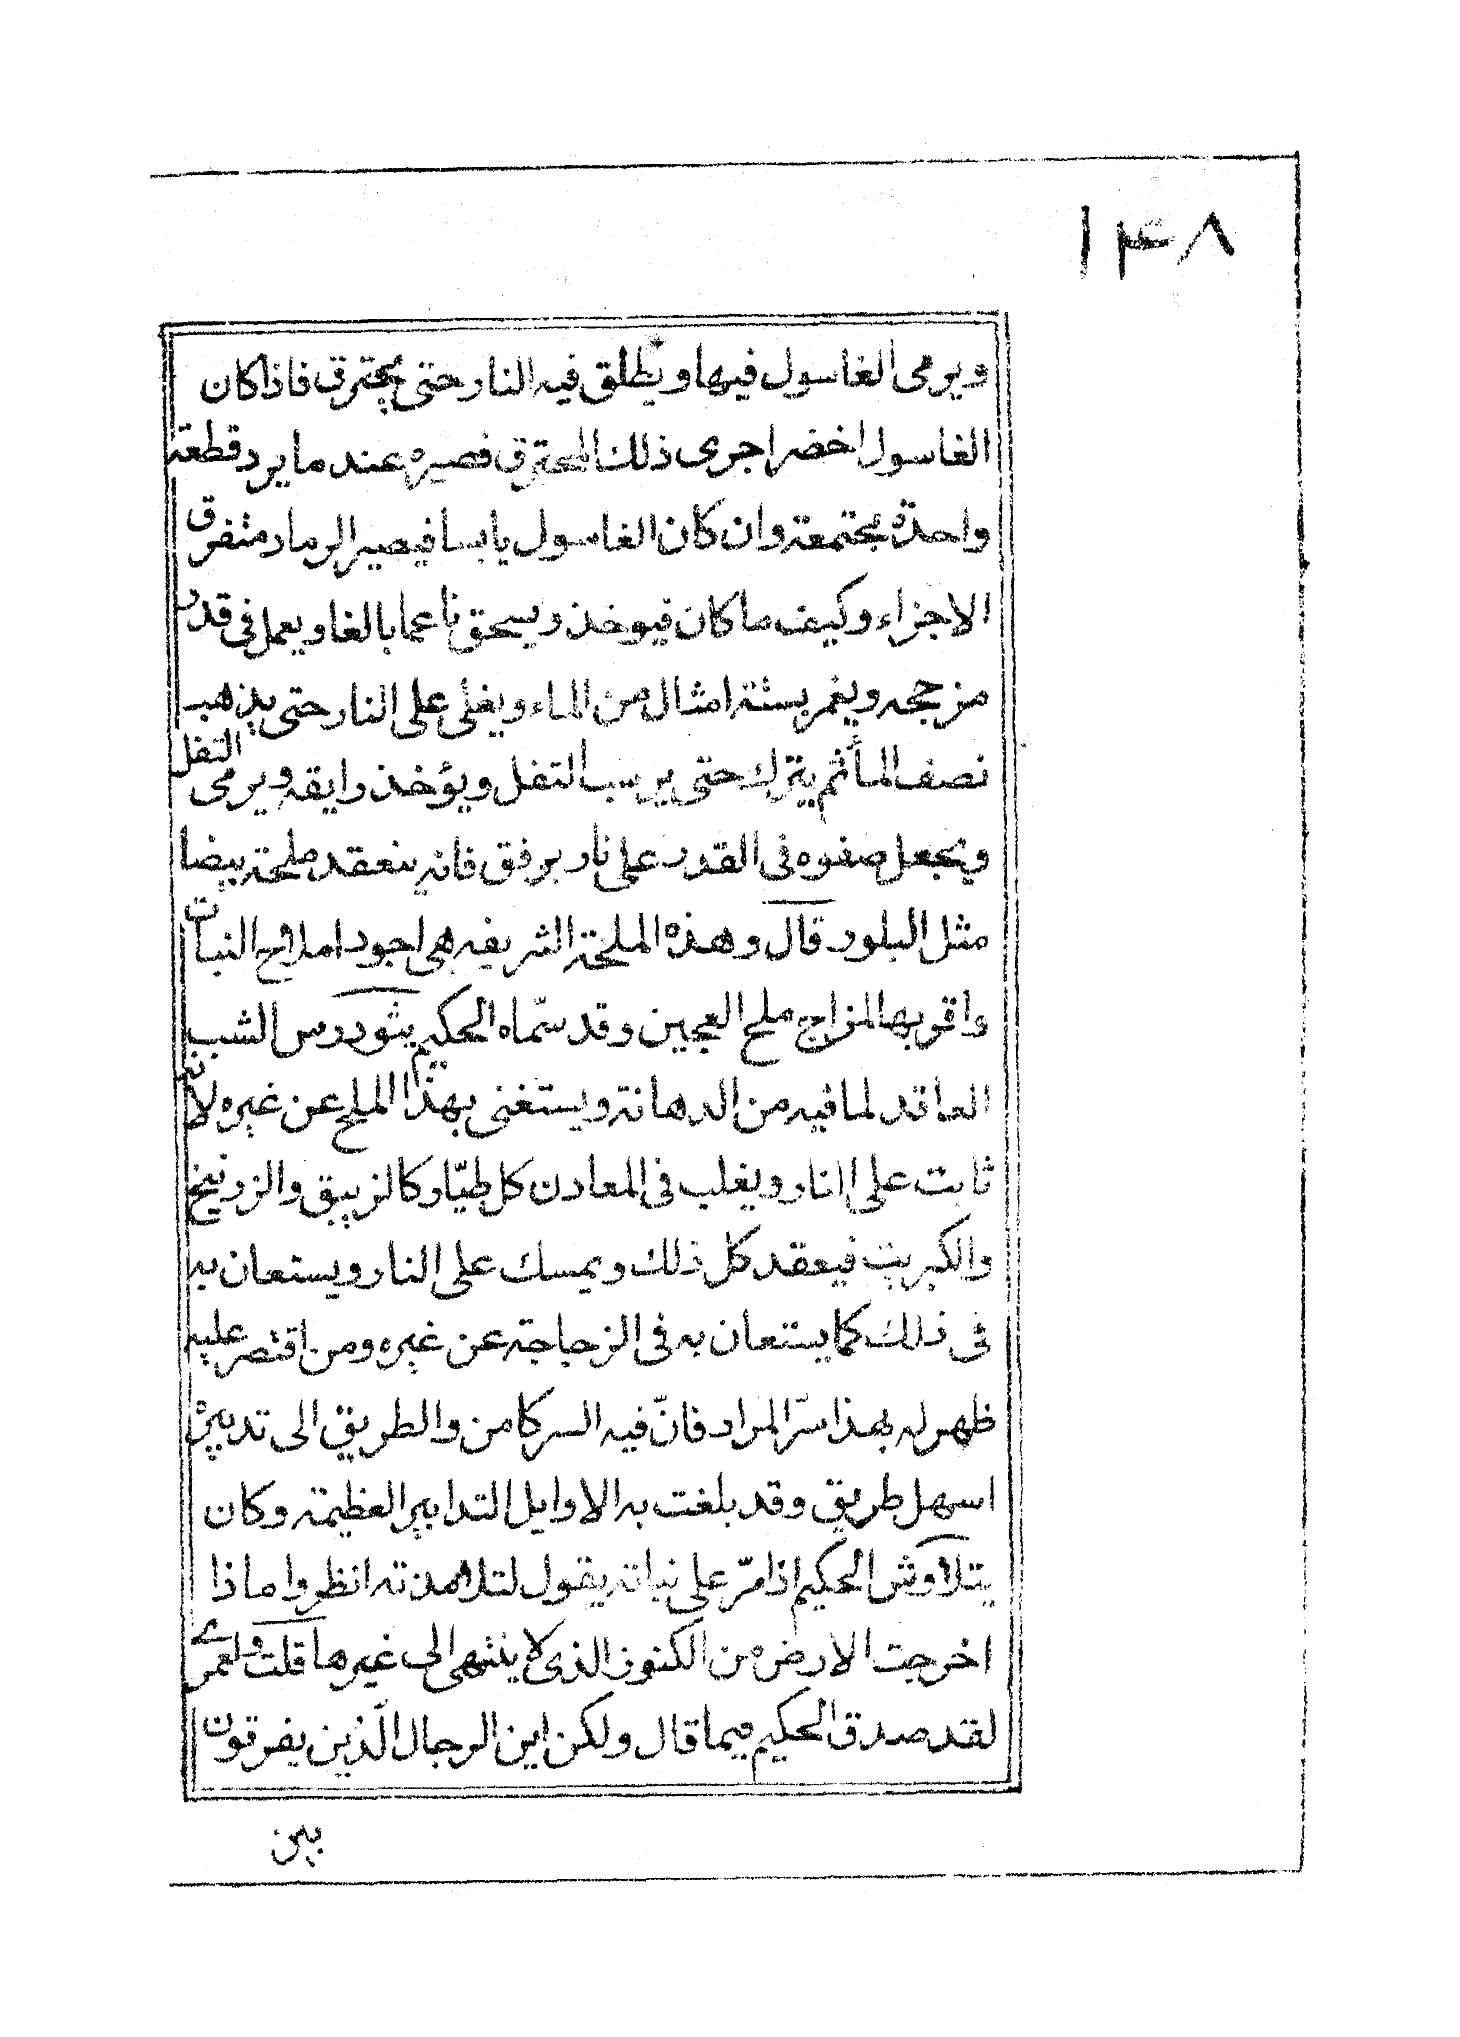 ۱۴۸
ويرمى الغاسول فيها ويطلق فيه النار حتى يحترق فاذا كان
الغاسول اخضر اجرى ذلك المحترق فصيره عند ما يرد قطعة
واحدة مجتمعة وان كان الغاسول يابسا فيصير الرماد متفرق
الاجزاء وكيف ما كان فيوخذ ويسحق ناعما بالغا ويعمل فى قدر
مزججه ويغمر بستة امثال من الماء ويغلى على النار حتى يذهب
نصف المأثم يترك حتى يرسب التفل ويؤخذ رايقه ويرمى التفل
ويجعل صفوه فى القدر على نار برفق فانه ينعقد ملحة بيضا
مثل البلور قال وهذه الملحة الشريفه هى اجود املاح النبات
واقربها لمزاج ملح العجين وقد سمّاه الحكيم يثوردس الشب
العاقد لما فيه من الدهانة ويستغنى بهذا الملح عن غيره لانه
ثابت على النار ويغلب فى المعادن كل طيّار كالزيبق والزرنيخ
والكبريت فيعقد كل ذلك ويمسك على النار ويستعان به
فى ذلك كما يستعان به فى الزجاجة عن غيره ومن اقتصر عليه
ظهر له بهذا سرّ المراد فانّ فيه السر كامن والطريق الى تدبيره
اسهل طريق وقد بلغت به الاوايل التدابير العظيمة وكان
يتلاوش الحكيم اذا مرّ على نباته يقول لتلامذته انظروا ماذا
اخرجت الارض من الكنوز الذى لا ينتهى الى غيرها قلت ولعمرى
لقد صدق الحكيم فيما قال ولكن اين الرجال الّذين يفرقون
بين